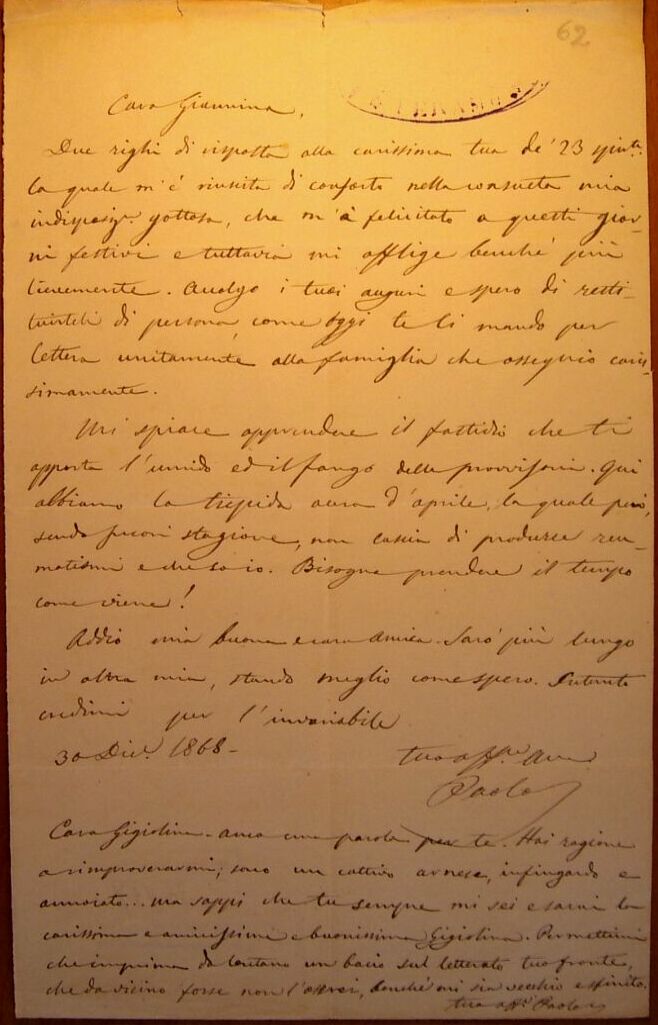 62
Cara Giannina,
Due righi di risposta alla carissima tua de' 23
la quale m'è riuscita di conforto nella consueta mia
gottosa, che m'à felicitato a questi gior-
ni festivi e tuttavia mi afflige benché più
lievemente. Accolgo i tuoi auguri e spero di resti-
tuirteli di persona, come oggi te li mando per
lettera unitamente alla famiglia che ossequio caris-
simamente.
Mi spiace apprendere il fastidio che ti
apporta l'umido ed il fango della provvisoria. Qui
abbiamo la tiepida aura d'aprile, la quale però,
sendo fuori stagione, non lascia di produrre reu-
matismi e che so io. Bisogna prendere il tempo
come viene!
Addio mia buona e cara amica. Sarò più lungo
in altra mia, stando meglio come spero. Intanto
credimi per l'invariabile
30 Dice. 1868-
tuo aff.mo
Paolo
Cara Gigiolina - anca una parola per te. Hai ragione
a rimproverarmi; sono un cattivo arnese, infingardo e
annoiato... ma sappi che tu sempre mi sei e sarai la
carissima e amicissima e buonissima Gigiolina. Permettimi
che imprima da lontano un bacio sul letterato tuo fronte,
che da vicino forse non l'oserei, benché mi sia vecchio e sfinito.
tuo aff. Paolo